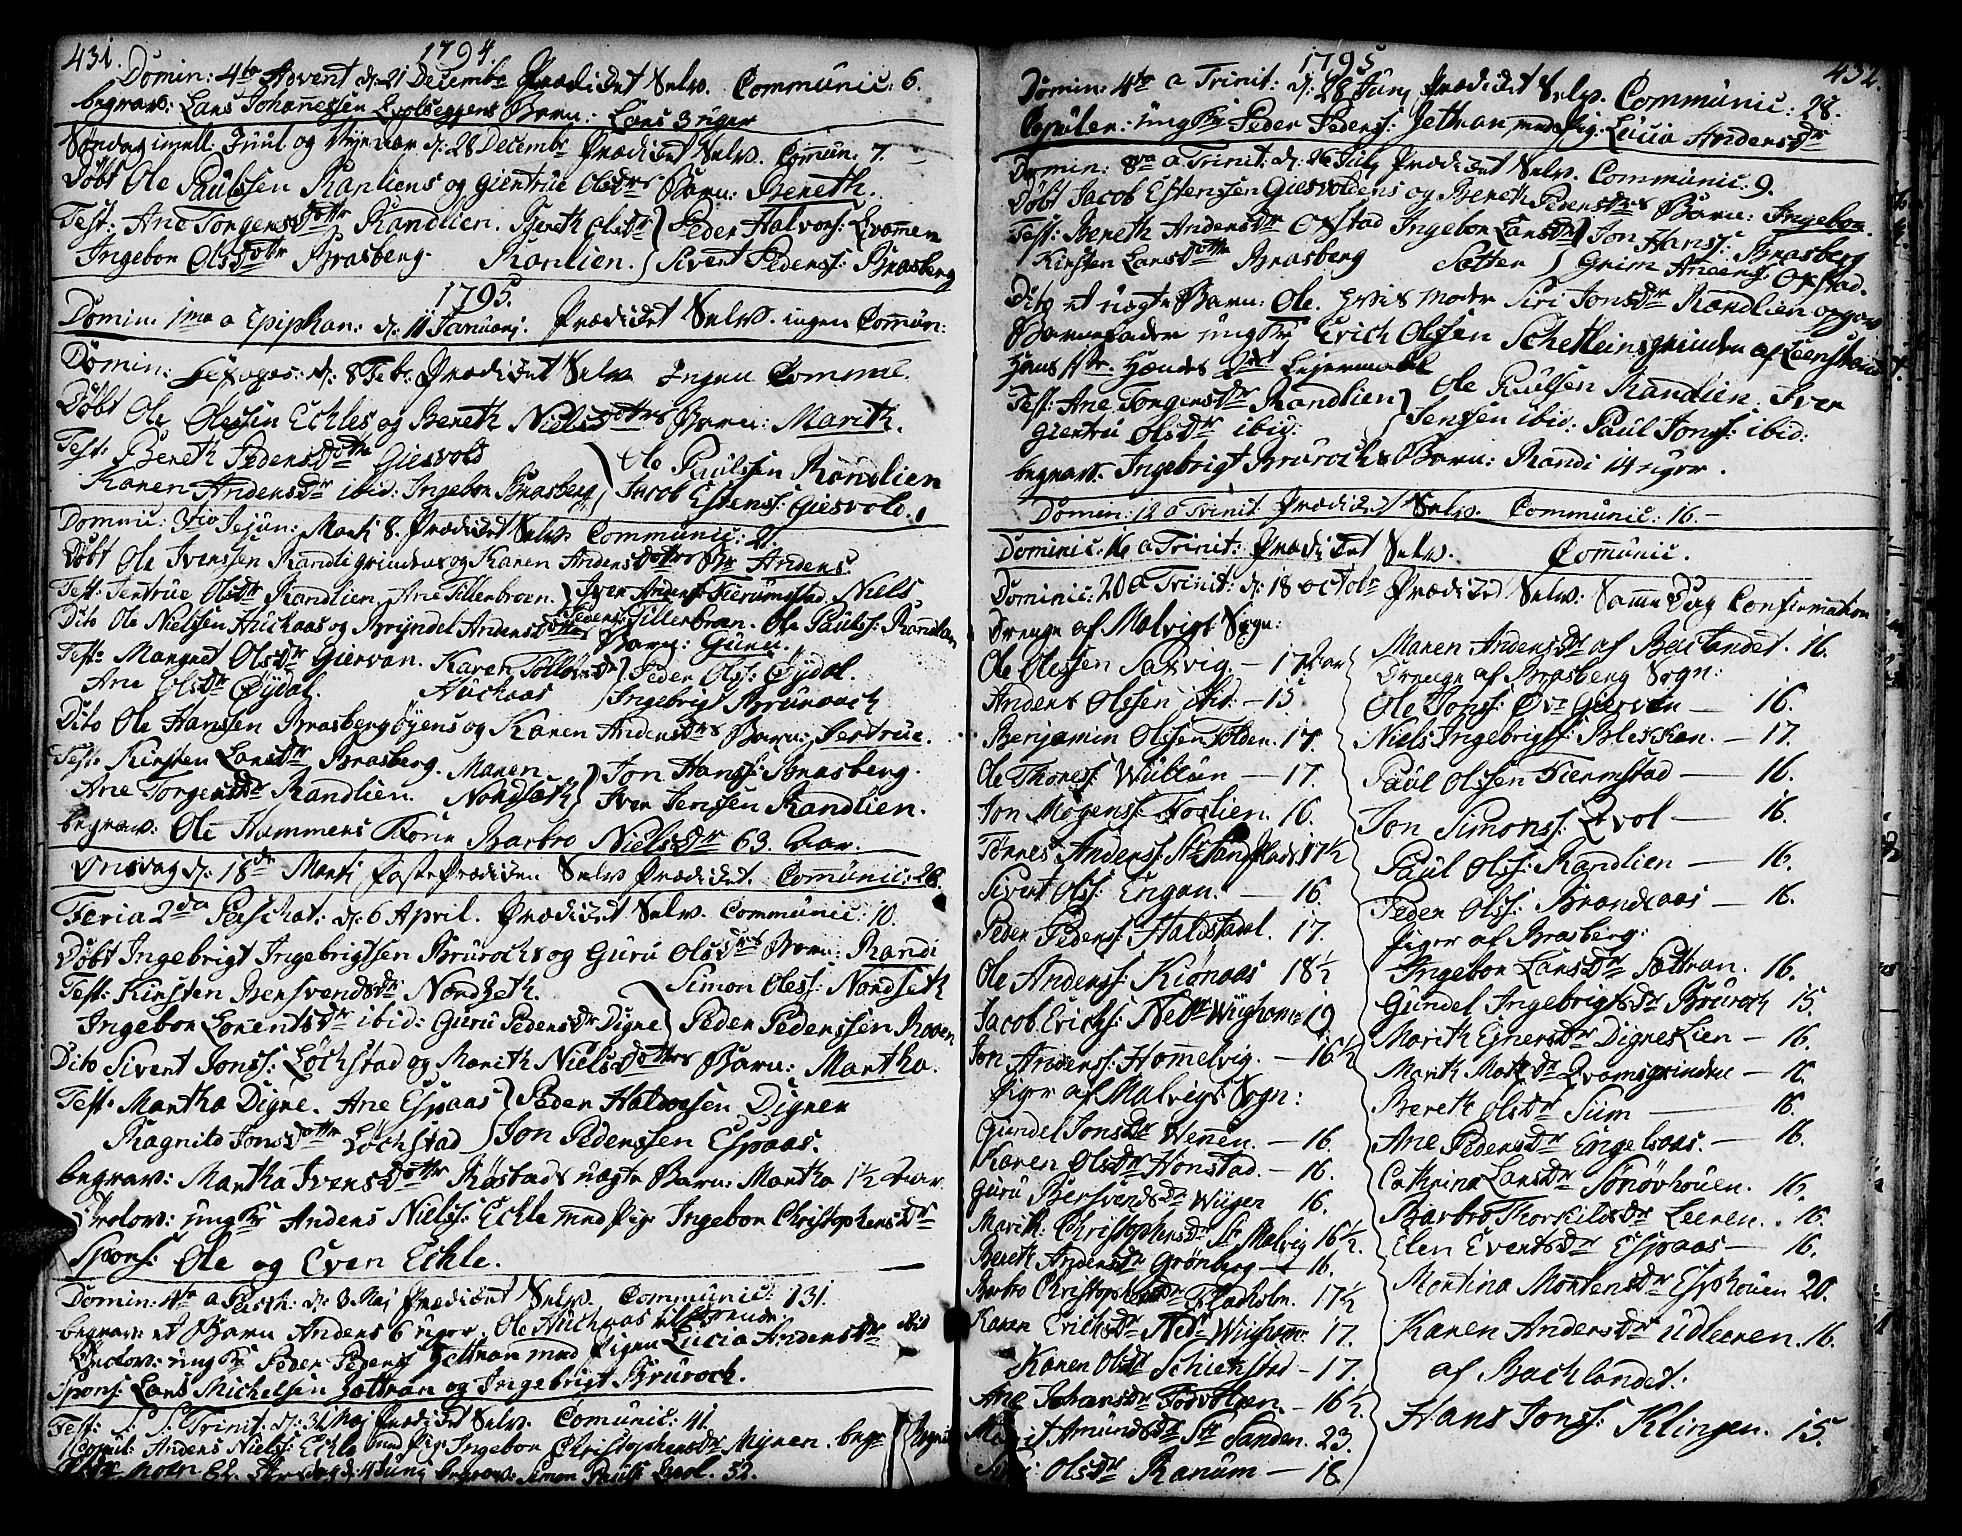 431. 1794
Domin: 4to Advent d: 21 Decembr Prædicket Selv. Communic: 6.
begrav: Lars Johannessen Evolseggens Barn: Lars 3 uger
Søndag imell: Juul og Nyeaar d: 28 Decembr Prædicket Selv. Comun: 7.
Døbt Ole Paulssen Ranliens og Giertrue Olsdrs Barn: Bereth.
Test: Ane Torgersdottr Randlien. Bereth Olsdr Peder Halvors: Qvamen
Ingebor Olsdottr Brasberg. Ranlien. Sivert Peders: Brasberg
1795.
Domin: 1ma a Epiphan: d: 11 Januarj. Prædicket Selv. ingen Comun:
Domin: Sexages: d: 8 Febr Prædicket Selv Ingen Commun.
Døbt Ole Olessen Eckles og Bereth Nielsdottrs Barn: Marith.
Test: Bereth Pedersdottr Giesvold Ole Paulssen Randlien
Karen Andersdr ibid: Ingebor Brasberg Jacob Estens: Giesvold.
Domin: 3tio Jejun: Marti 8. Prædicket Selv. Communic: 21.
Døbt Ole Iverssen Randligrindens og Karen Andersdotters Br Anders.
Test: Jertrue Olsdr Randlien. Ane Tillerbroen. Iver Anders: Fierumstad. Niels
Dito Ole Nielssen Huckaas og Bryndel Andersdotters Peders: Tillerbroen. Ole Pauls: Randlien
Barn: Guru.
Test: Margret Olsdr Giervan. Karen Tollevsdr Peder Ols: Øydal.
Ane Olsdr Øydal. Huckaas Ingebrigt Brurock
Dito Ole Hanssen Brasbergøyens og Karen Andersdrs Barn: Jertrue.
Test: Kirsten Larsdr Brasberg. Maren Jon Hans: Brasberg.
Ane Torgersdr Randlien. Nordsæth Iver Jenssen Randlien.
begrav: Ole Hammers Kone Barbro Nielsdr 63. Aar.
Onsdag d: 18de Marti fastePrædiken Selv Prædicket. Comunic: 28.
Feria 2da Paschat: d: 6 April. Prædicket Selv. Communic: 10.
Døbt Ingebrigt Ingebrigtsen Brurocks og Guru Olsdrs Barn: Randi
Test: Kirsten Bersvendsdr Nordseth. Simon Oless: Nordseth
Ingebor Lorentsdr ibid: Guru Pedersdr Digne Peder Pederssen Roven
Dito Sivert Jons: Løchstad og Marith Nielsdotters Barn: Martha.
Test: Martha Digne. Ane Espaas Peder Haldorsen Dignes
Ragnild Jonsdottr Løchstad Jon Pederssen Espaas.
begrav: Martha Iversdottr Røstads uægte Barn: Martha 1½ Aar
Trolov: ungkr Anders Niels: Eckle med Pig: Ingebor Christophersdr
Spons: Ole og Even Eckle.
Domin: 4ta a Pasch: d: 3 Maj Prædicket Selv. Communic: 131.
begrav: et Barn Anders 6 uger, Ole Huckaas
Trolov: ungkr Peder Peders: Jettran med Pigen Lucia Andersdr ibid
Spons: Lars Michelsen Jøttran og Ingebrigt Brurock.
Fest: S: S: Trinit: d: 31 Maj Prædicket Selv. Comunic: 41.
Copul: Anders Niels: Eckle med Pig: Ingebor Christophersdr Mynen. begr:
d: 4 Junj begrav: Simon Pauls: Qvol. 52.
1795 432.
Domin: 4ta a Trinit: d: 28 Junj Prædicket Selv. Communic: 28.
Copuler: ungkr Peder Peders: Jettran med Pig: Lucia Andersdr
Domin: 8va a Trinit: d: 26 July Prædicket Selv. Communic: 9.
Døbt Jacob Esterssen Giesvoldens og Bereth Pedersdrs Barn: Ingebor.
Test: Bereth Andersdr Oxstad Ingebor Larsdr Jon Hans: Brasberg
Kirsten Larsdottr Brasberg Sætter Grim Anders: Oxstad.
Dito et uægte Barn: Ole. hvis Moder Siri Jonsdr Randlien opgav
Barnefader ungkr Erich Olssen Schetleinsgrinden af Leenstrand.
Hans 1te. Hændes 2det Leiermaal
Test: Ane Torgersdr Randlien Ole Paulsen Randlien. Iver
Giertru Olsdr ibid: Jenssen ibid: Paul Jons: ibid:
begrav: Ingebrigt Brurocks Barn: Randi 14 uger.
Domin: 12 a Trinit Prædicket Selv. Communic: 16.
Dominic: 16 a Trinit: Prædicket Selv. Comunic.
Dominic: 20 a Trinit: d: 18 octobr Prædicket Selv: Samme Dag Confirmation
Drenge af Malvigs Sogn:
Ole Olessen Saxvig. — 17 Aar
Anders Olssen ibid: — 15
Benjamin Olssen Folden. 17.
Ole Thores: Wullun — 17.
Jon Mogens: Foslien. 16.
Tønnes Anders: Str Sandstad: 17½
Sivert Ols: Engan. — 16.
Peder Peders: Haldstadel. 17.
Ole Anders: Kiønaas 18½
Jacob Erichs: Nedr Wiighom: 19
Jon Anders: Hommelvig. — 16½
Piger af Malvigs Sogn:
Gundel Jonsdr Wennen. — 16.
Karen Olsdr Honstad. — 16.
Guru Bersvendsdr Wiigen 16.
Marith. Christophersdr Str Malvig 16½.
Bereth Andersdr Grønberg — 16.
Barbro Christophersdr Fladholm. 17½
Karen Erichsdr Nedr Wiighom 17.
Karen Olsdr Schienstad — 17.
Ane Johansdr Fodvolden. — 16½.
Marit Amundsdr Str Sanden. 23.
Siri Olsdr Ranum — 18.
Maren Andersdr af Baclandet. 16.
Drenge af Brasberg Sogn:
Ole Jons: Ovr Giervan — 16.
Niels Ingebrigts: Bleskan. — 17.
Paul Olssen Fiermstad — 16.
Jon Simons: Qvol — 16.
Paul Ols: Randlien — 16.
Peder Ols: Brandaas — 16.
Piger af Brasberg:
Ingebor Larsdr Sættran. 16.
Gundel Ingebrigtsdr Brurock 15.
Marith Ejnersdr Digneslien — 16.
Marith Matzdr Qvamsgrinden — 16.
Bereth Olsdr Siim — 16.
Ane Pedersdr Engelsaas. — 16.
Cathrina Larsdr Sønøvhouen. 16.
Barbro Thorkildsdr Leeren. 16.
Elen Evertsdr Espaas — 16.
Martina Mortensdr Esphouen 20.
Karen Andersdr Udleeren. 16.
af Bachlandet:
Hans Jons: Klingen. 15.